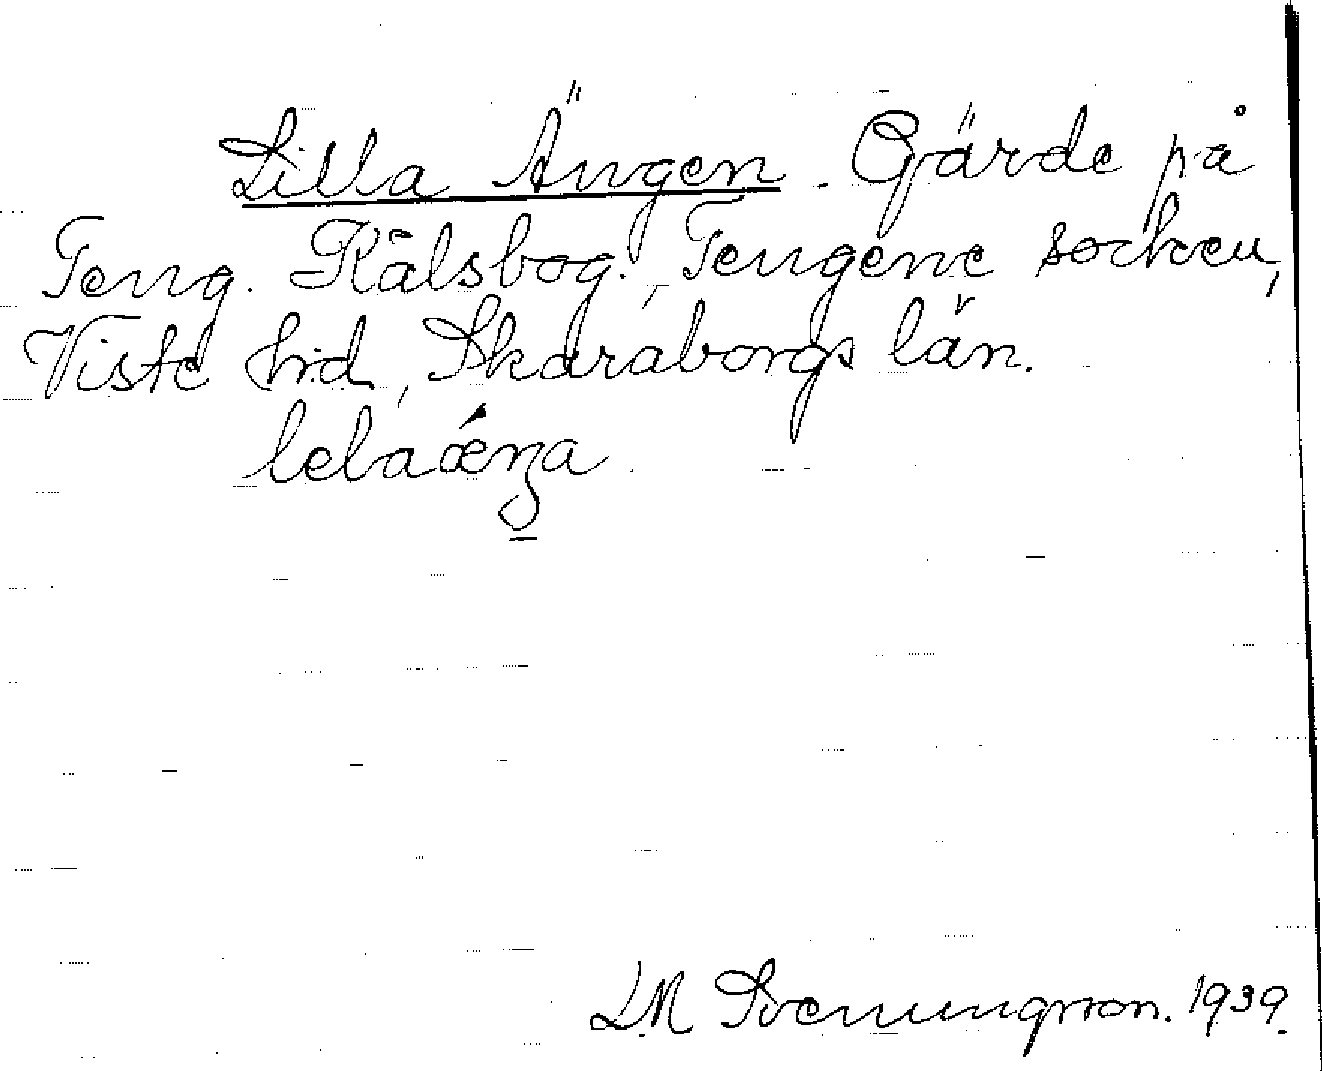 Lilla Ängen. Gärde på
Teng. Kälsbog. Tengene socken,
Viste hrd, Skaraborgs län.
LM Svenungsson. 1939.